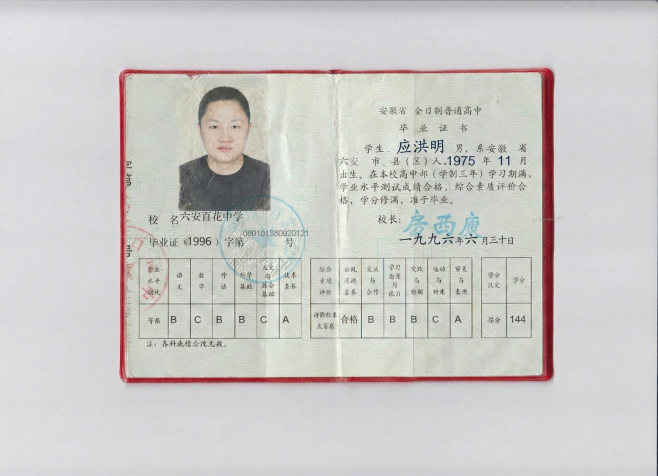 安徽省 全日制普通高中
毕业证书
学生 应洪明 男，系安徽 省
六安 市、县（区）人，1975 年 11 月
出生。在本校高中部（学制三年）学习期满，
学业水平测试成绩合格，综合素质评价合
格，学分修满，准予毕业。
校长： 房西廋
一九九六年六月三十日
校 名 六安百花中学
毕业证（1996）字第 080101380920121 号
学业水平测试 语文 数学 外语
等第 B C B B C A
注：各科成绩涂改无效。
综合素质评价 公民道德素养 交流与合作 学习态度与能力 实践与创新 运动与健康 审美与表现 学分认定 学分
合格 B B B C A 144